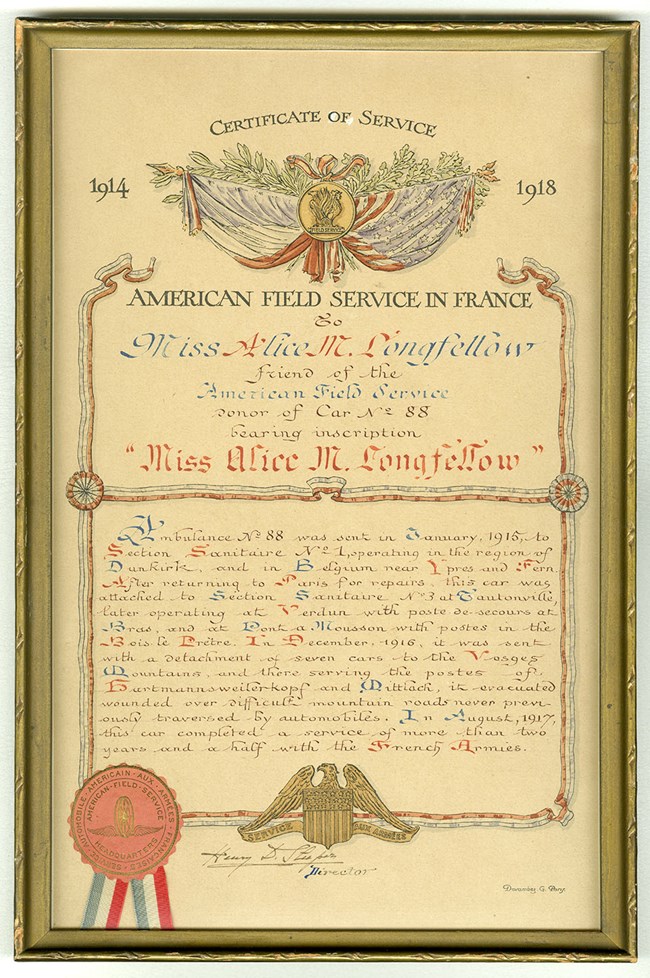 CERTIFICATE OF SERVICE
1914
1918
FIELD SERVICE
AMERICAN FIELD SERVICE IN FRANCE
To
Miss Alice M. Longfellow
friend of the
American Field Service
donor of Car No 88
bearing inscription
"Miss Alice M. Longfellow"
Ambulance No 88 was sent in January, 1915, to
Section Sanitaire No 1, operating in the region of
Dunkirk, and in Belgium near Ypres and Fern.
After returning to Paris for repairs, this car was
attached to Section Sanitaire No 3 at Tautonville,
later operating at Verdun with poste de secours at
Bras, and at Pont a Mousson with postes in the
Bois le Prètre. In December, 1916, it was sent
with a detachment of seven cars to the Vosges
Mountains, and there serving the postes of
Hartmannsweilerkopf and Mittlach, it evacuated
wounded over difficult mountain roads never previ-
ously traversed by automobiles. In August, 1917,
this car completed a service of more than two
years and a half with the French Armies.
SERVICE AUTOMOBILE AMERICAIN AUX ARMÉES FRANÇAISES
AMERICAN FIELD SERVICE
HEADQUARTERS
SERVICE AUX ARMÉES
Henry D. Sleeper
Director